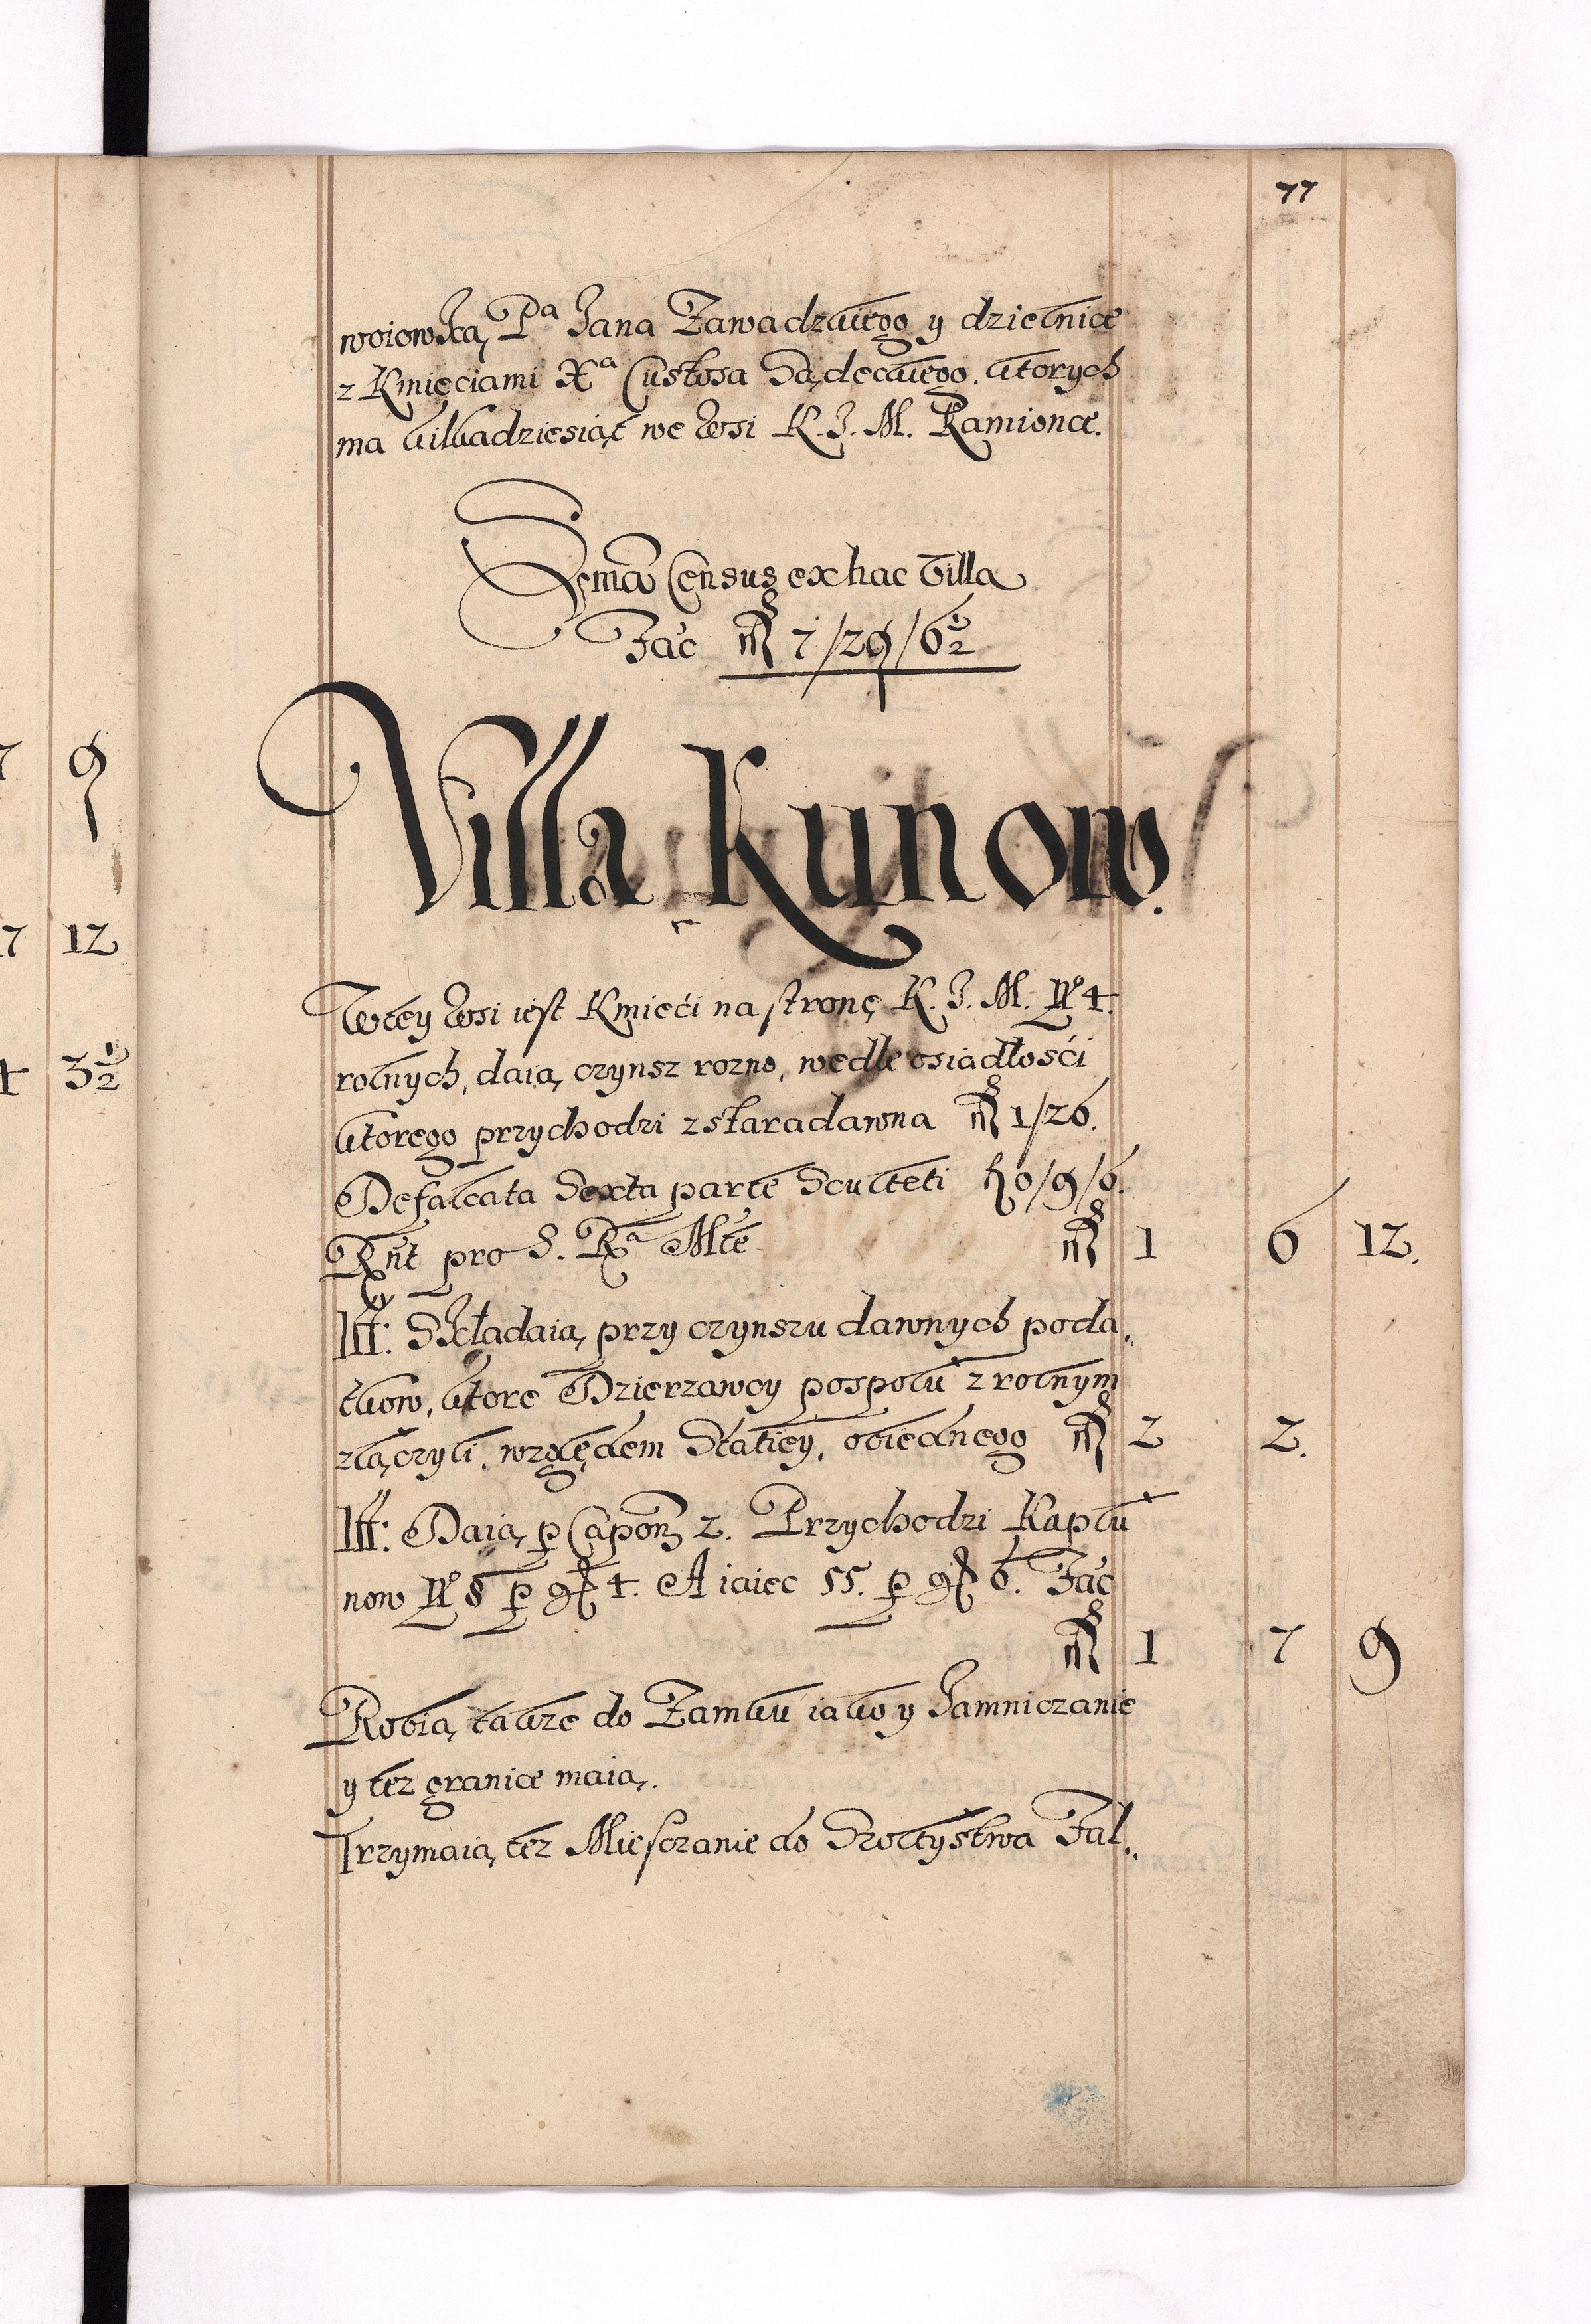 77
woiowską, Pa Jana Zawadzkiego y dzielnice
z Kmięciami Xa Custosa Sądeckiego. ktorych
ma kilkadziesiąt we wsi K. J. M. Kamionce.
Sema Census ex hac Villa
Fac 7/29/6½
Villa Kunow.
W tey wsi iest Kmieci na stronę K. J. M. No 4.
rolnych, daią czynsz rozno, wedle osiadłości
ktorego przychodzi z staradawna 1/26.
Defalcata Sexta parte Sculteti 0/9/6.
Rnt pro S. Ra Mte 1 6 12.
Itt: Składaią przy czynszu dawnych poda
tkow, ktore Dzierzawcy pospolu z rolnym
złączyli, względem Statiey, obiednego 2 2.
Itt: Daią p Capon 2. Przychodzi Kaplu
now No 8 p 4. A iaiec 55. p 6. Fac
1 7 9
Robią także do Zamku iako y Jamniczanie
y też granice maią.
Trzymaią też Miesczanie do Szołtystwa Fal..
7 9
7 12
4 3½